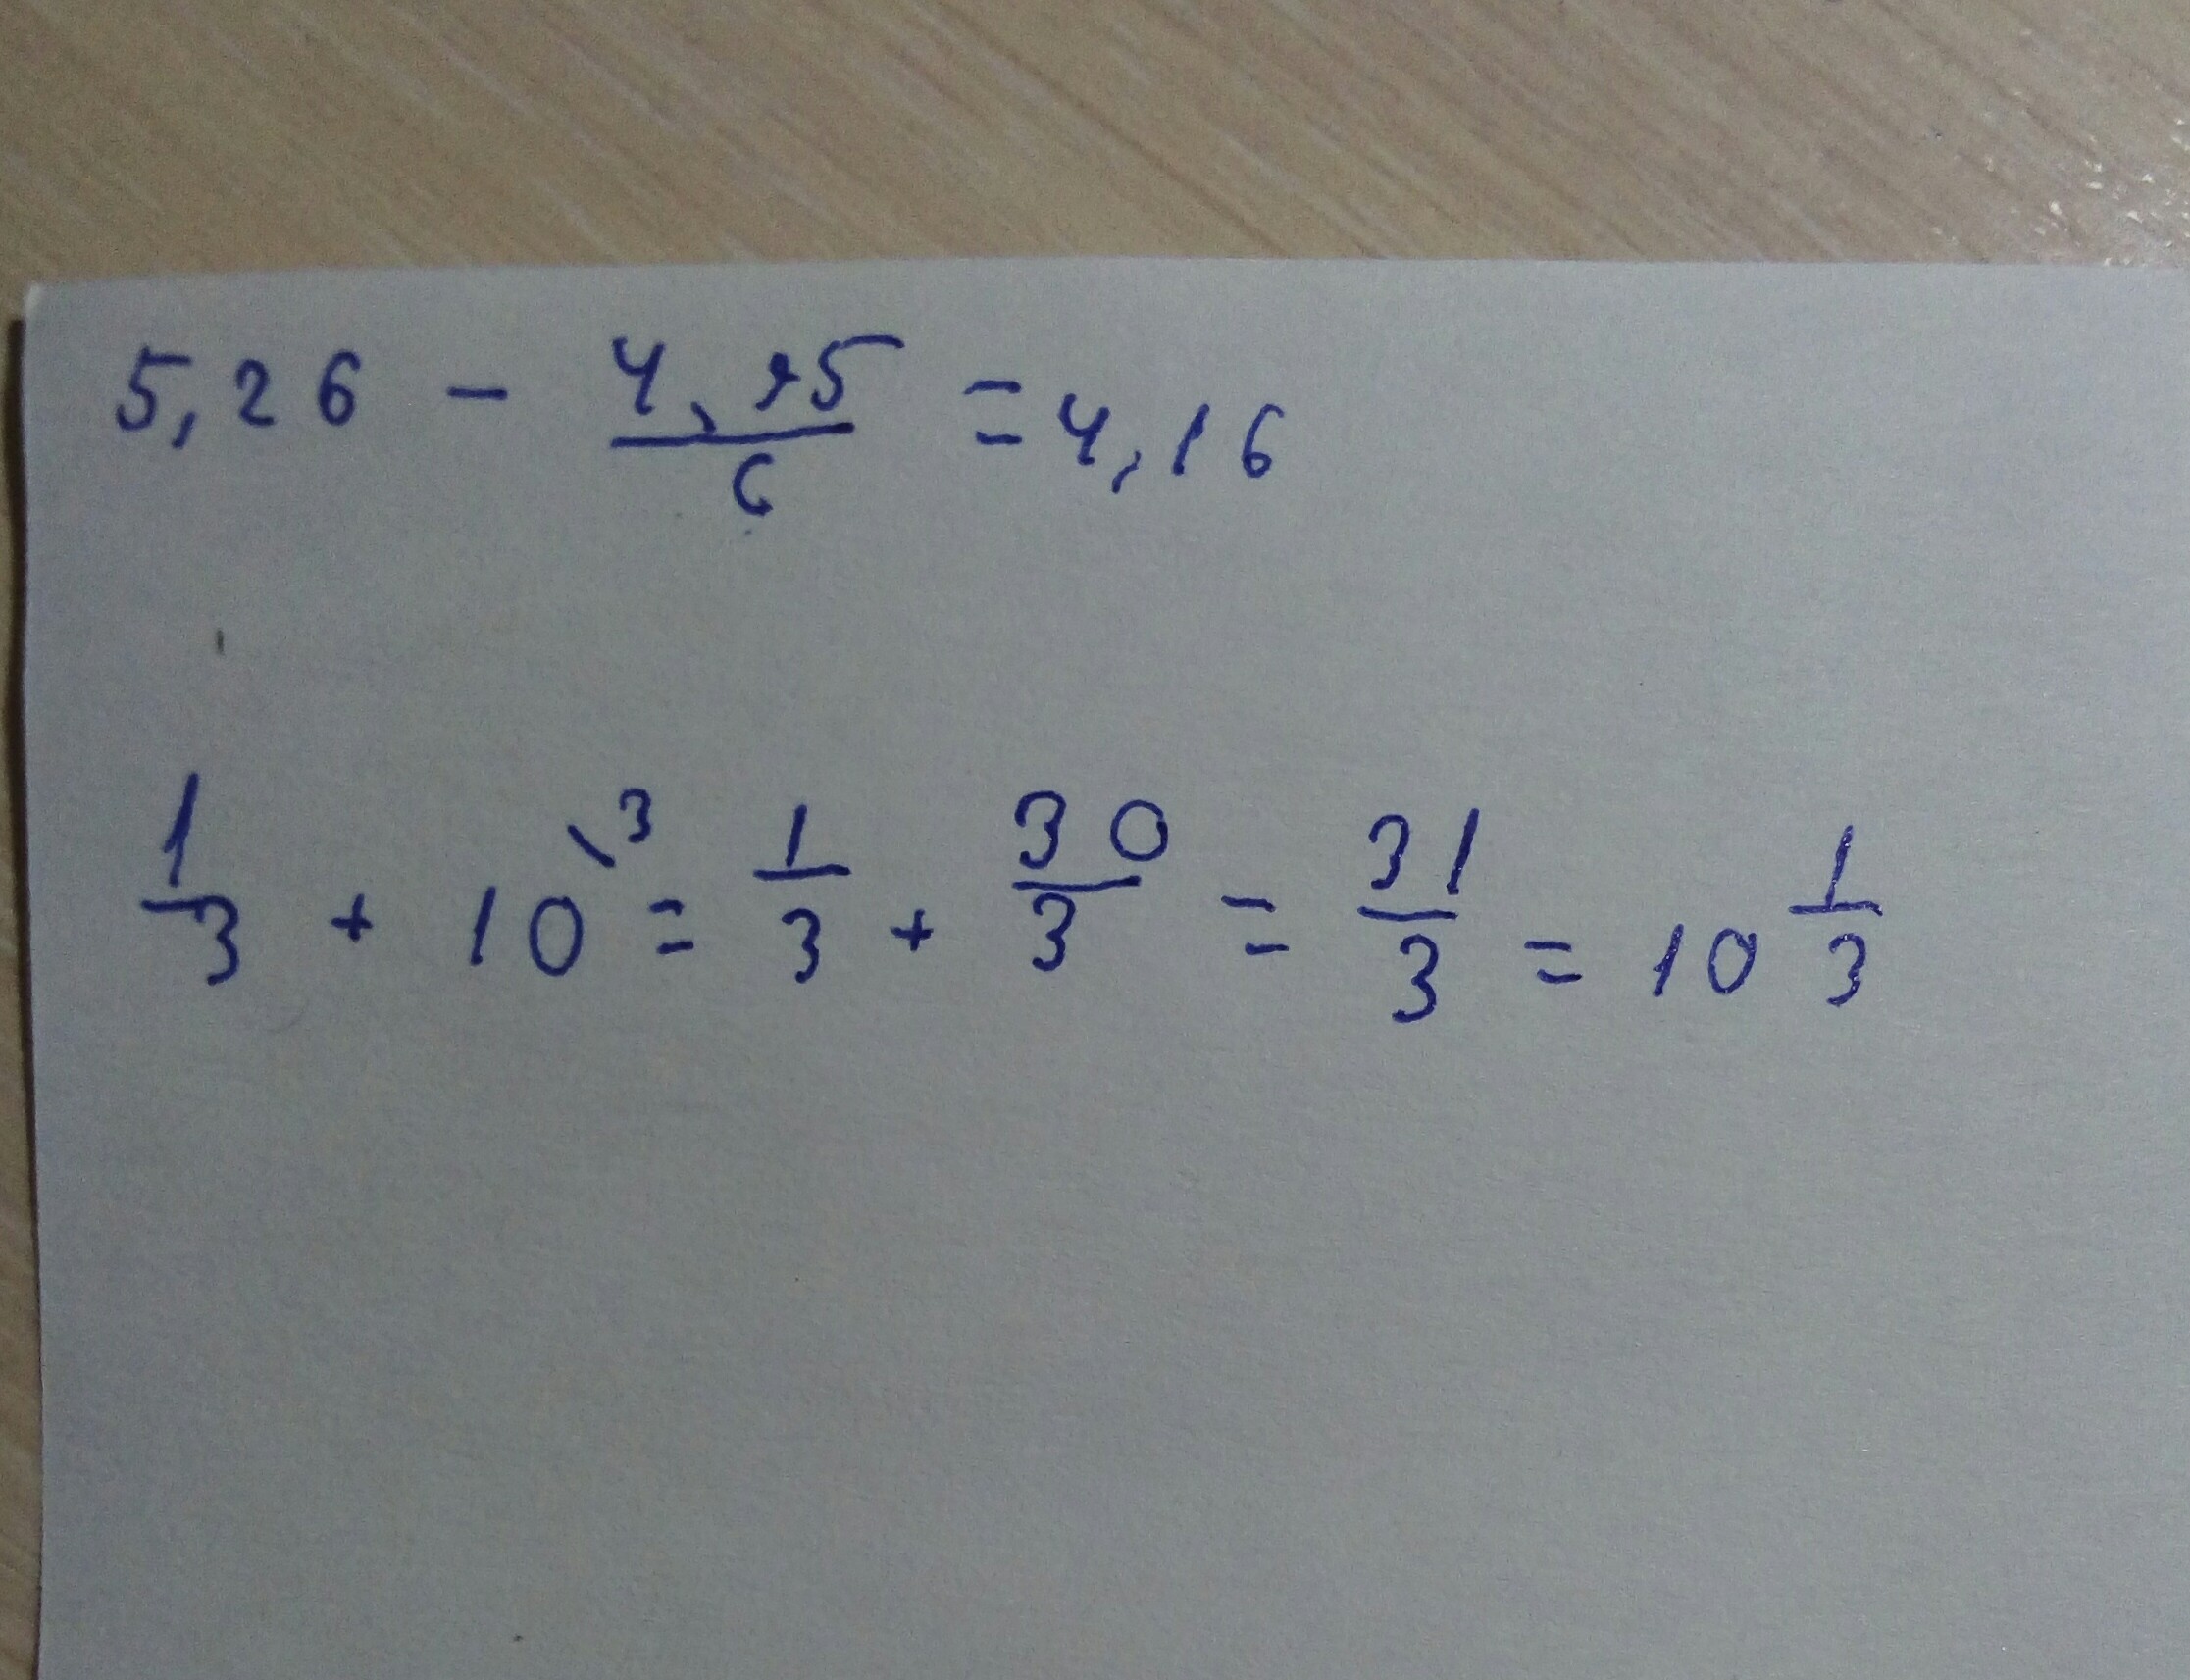 5,26 - 4,95/6 = 4,16
1/3 + 10\³ = 1/3 + 30/3 = 31/3 = 10 1/3